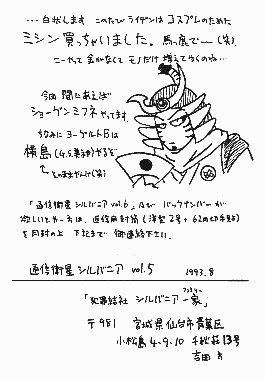 …白状します。このたびライデンはコスプレのために
ミシン買っちゃいました。馬っ鹿で〜(笑)
こーやって金がなくてモノだけ増えてくのね…
今回 間にあえば
ショーグンミフネやってます。
ちなみにヨーグルトBは
横島(G.S.美神)やるぞ
そのまますんけ(笑)
「通信衛星シルバニア vol.6」及び バックナンバーが
欲しいとゆー方は、返信用封筒(洋型2号+62円切手貼)
を同封の上 下記まで 御連絡下さい。
通信衛星 シルバニア vol.5 1993.8
「犯罪結社 シルバニア一家」
ファミリー
〒981 宮城県仙台市青葉区
小松島4-9-10 千秋荘13号
吉田 方